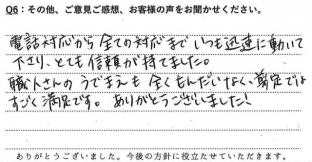 Q6：その他、ご意見ご感想、お客様の声をお聞かせください。
電話対応から全ての対応までいつも迅速に動いて
下さり、とても信頼が持てました。
職人さんのうでまえも全くもんだいなく、剪定では
すごく満足です。ありがとうございました！
ありがとうございました。今後の方針に役立たせていただきます。